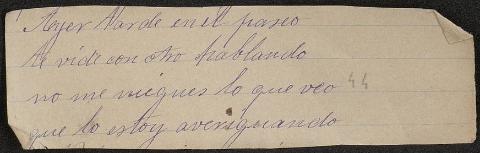 Ayer tarde en el paseo
te vide con otro hablando
no me niegues lo que veo 44
que lo estoy averiguando